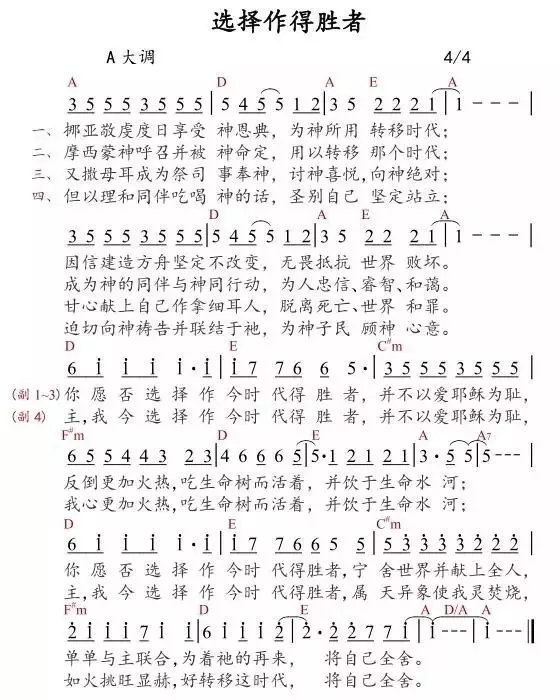 选择作得胜者
A大调 4/4
A D A E A
3 5 5 5 3 5 5 5 | 5 4 5 5 1 2 | 3 5 2 2 2 1 | 1 - - - |
一、挪亚敬虔度日享受 神恩典，为神所用 转移时代；
二、摩西蒙神呼召并被 神命定，用以转移 那个时代；
三、又撒母耳成为祭司 事奉神，讨神喜悦，向神绝对；
四、但以理和同伴吃喝 神的话，圣别自己 坚定站立；
D A E A
3 5 5 5 3 5 5 5 | 5 4 5 5 1 2 | 3 5 2 2 2 1 | 1 - - - |
因信建造方舟坚定不改变，无畏抵抗 世界 败坏。
成为神的同伴与神同行动，为人忠信、睿智、和蔼。
甘心献上自己作拿细耳人，脱离死亡、世界 和罪。
迫切向神祷告并联结于祂，为神子民 顾神 心意。
D E C#m
6 i i i i· i | i 7 7 6 6 5· | 3 5 5 5 5 5 5 5
(副 1~3) 你 愿 否 选 择 作 今时 代得胜 者，并不以爱耶稣为耻，
(副 4) 主，我 今 选 择 作 今时 代得胜 者，并不以爱耶稣为耻，
F#m D E A A7
反倒更加火热，吃生命树而活着，并饮于生命水 河；
我心更加火热，吃生命树而活着，并饮于生命水 河；
D E C#m
你 愿 否 选 择 作 今时 代得胜者，宁 舍世界并献上全人，
主，我 今 选 择 作 今时 代得胜者，属 天异象使我灵焚烧，
F#m D E A D/A A
单单与主联合，为着祂的再来， 将自己全舍。
如火挑旺显赫，好转移这时代， 将自己全舍。